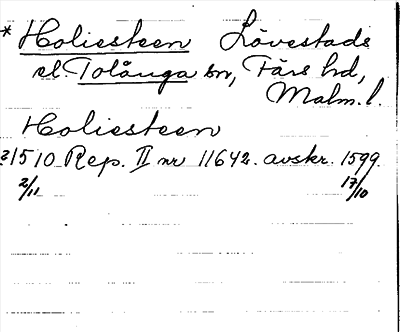 * Holiesteen Lövestads
el. Tolånga sn, Färs hd,
Malm. l.
Holiesteen
?1510 Rep. II nr 11642. avskr. 1599.
2/11 17/10